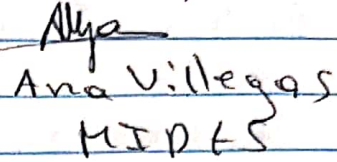 Ana Villegas
MIDES